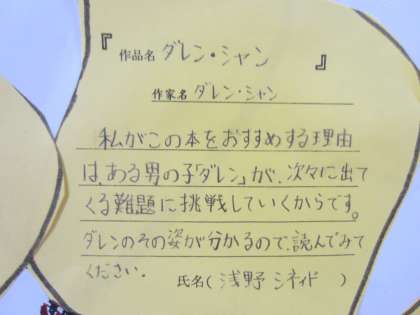 『作品名 ダレン・シャン 』
作家名 ダレン・シャン
私がこの本をおすすめする理由
は、ある男の子「ダレン」が、次々に出て
くる難題に挑戦していくからです。
ダレンのその姿が分かるので、読んでみて
ください。
氏名( 浅野 シネイド )